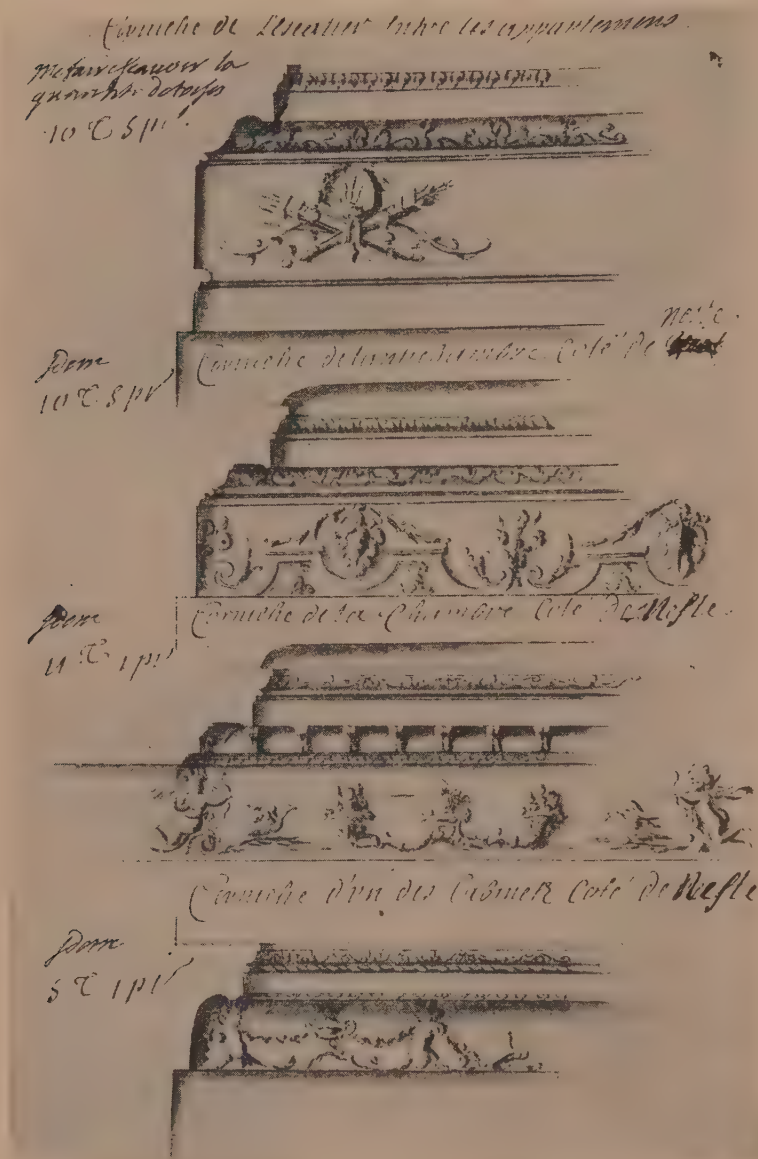 Corniche de Lescalier Entre les appartemens
me faire scauoir la
quantité de toises
10 T 5 pi
Corniche de lantichambre Coté de Nesle
Idem
10 T 5 pi
Corniche de la Chambre Coté De Nesle
Idem
11 T 1 pi
Corniche d'un des Cabinets Coté De Nesle
Idem
5 T 1 pi